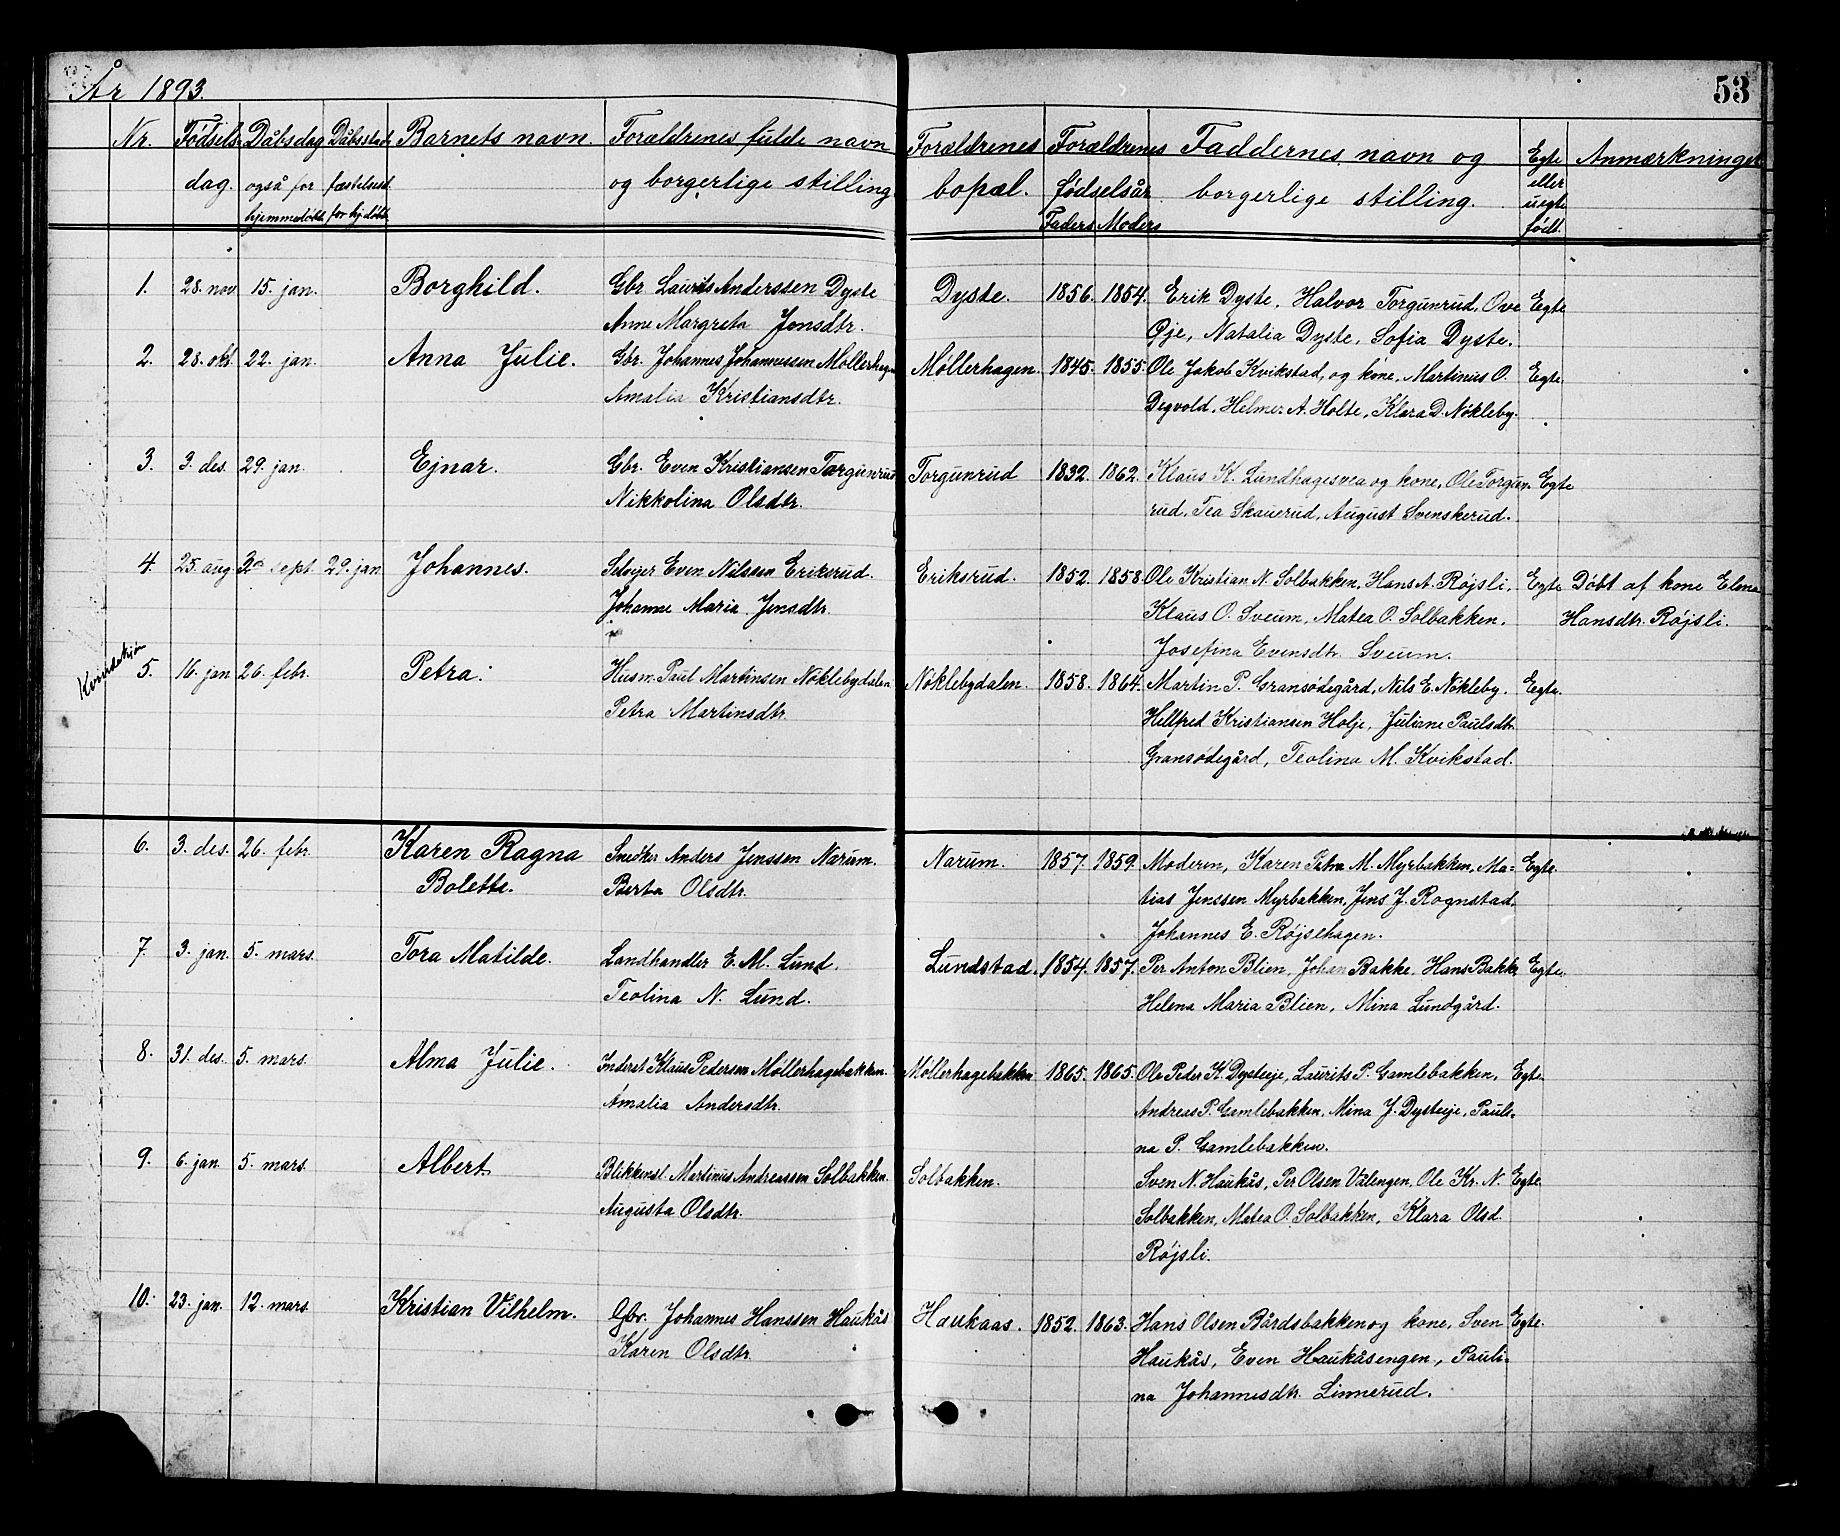 År 1893.
53
Nr. Fødsels- Dåbsdag Dåbssted Barnets navn. Forældrenes fulde navn Forældrenes Forældrenes Faddernes navn og Egte Anmærkninger
dag. også for fæstelsest. og borgerlige stilling bopæl. fødselsår borgerlige stilling. eller
hjemmedøbt. for hj.døbt. Faders Moders uegte
født.
1. 28. nov. 15. jan. Borghild. Gbr. Laurits Anderssen Dyste Dyste. 1856. 1854. Erik Dyste, Halvor Torgunrud, Ove Egte
Anne Margreta Jonsdtr. Øje, Natalia Dyste, Sofia Dyste.
2. 28. okt. 22. jan. Anna Julie. Gbr. Johannes Johannessen Møllerhagen Møllerhagen. 1845. 1855. Ole Jakob Kvikstad, og kone, Martinus O. Egte.
Amalia Kristiansdtr. Degvold, Helmer A. Holte, Klara D. Nökleby.
3. 3. des. 29. jan. Ejnar. Gbr. Even Kristiansen Torgunrud Torgunrud 1832. 1862. Klaus K. Lundhagesvea og kone, Ole Torgun- Egte
Nikkolina Olsdtr. rud, Tea Skauerud, August Svenskerud.
4. 25. aug. 3die sept. 29. jan Johannes. Selvejer Even Nilssen Eriksrud. Eriksrud. 1852. 1858. Ole Kristian N. Solbakken, Hans A. Røjsli, Egte Døbt af kone Elena
Johanne Maria Jensdtr. Klaus O. Sveum, Matea O. Solbakken, Hansdtr. Røjsli.
Josefina Evensdtr. Sveum.
Kvindekjøn 5. 16. jan 26. febr. Petra. Husm. Paul Martinsen Nöklebydalen Nöklebydalen. 1858. 1864. Martin P. Gransødegård, Nils E. Nökleby. Egte.
Petra Martinsdtr. Hellfred Kristiansen Holje, Juliane Paulsdtr.
Gransødegård, Teolina M. Kvikstad.
6. 3. des. 26. febr. Karen Ragna Snedker Anders Jenssen Narum. Narum. 1857. 1859. Moderen, Karen Petra M. Myrbakken, Ma- Egte.
Bolette. Berta Olsdtr. tias Jenssen Myrbakken, Jens J. Rognstad,
Johannes E. Røjsehagen.
7. 3. jan. 5. mars. Tora Matilde. Landhandler E. M. Lund. Lundstad. 1854. 1857. Per Anton Blien, Johan Bakke, Hans Bakke Egte.
Teolina N. Lund. Helena Maria Blien, Mina Lundgård.
8. 31. des. 5. mars. Alma Julie. Inderst Klaus Pedersen Møllerhagebakken. Møllerhagebakken 1865. 1865. Ole Peder K. Dysteeje, Laurits P. Gamlebakken, Egte
Amalia Andersdtr. Andreas P. Gamlebakken, Mina J. Dysteeje, Pauli-
na P. Gamlebakken.
9. 6. jan. 5. mars. Albert Blikkensl. Martinus Andreassen Solbakken. Solbakken. Sven N. Haukås, Per Olsen Vålengen, Ole Kr. N. Egte
Augusta Olsdtr. Solbakken, Matea O. Solbakken, Klara Olsd.
Røjsli.
10. 23. jan. 12. mars. Kristian Vilhelm. Gbr. Johannes Hanssen Haukås Haukaas. 1852. 1863. Hans Olsen Bårdsbakken og kone, Sven Egte.
Karen Olsdtr. Haukås, Even Haukåsengen, Pauli-
na Johannesdtr. Linnerud.